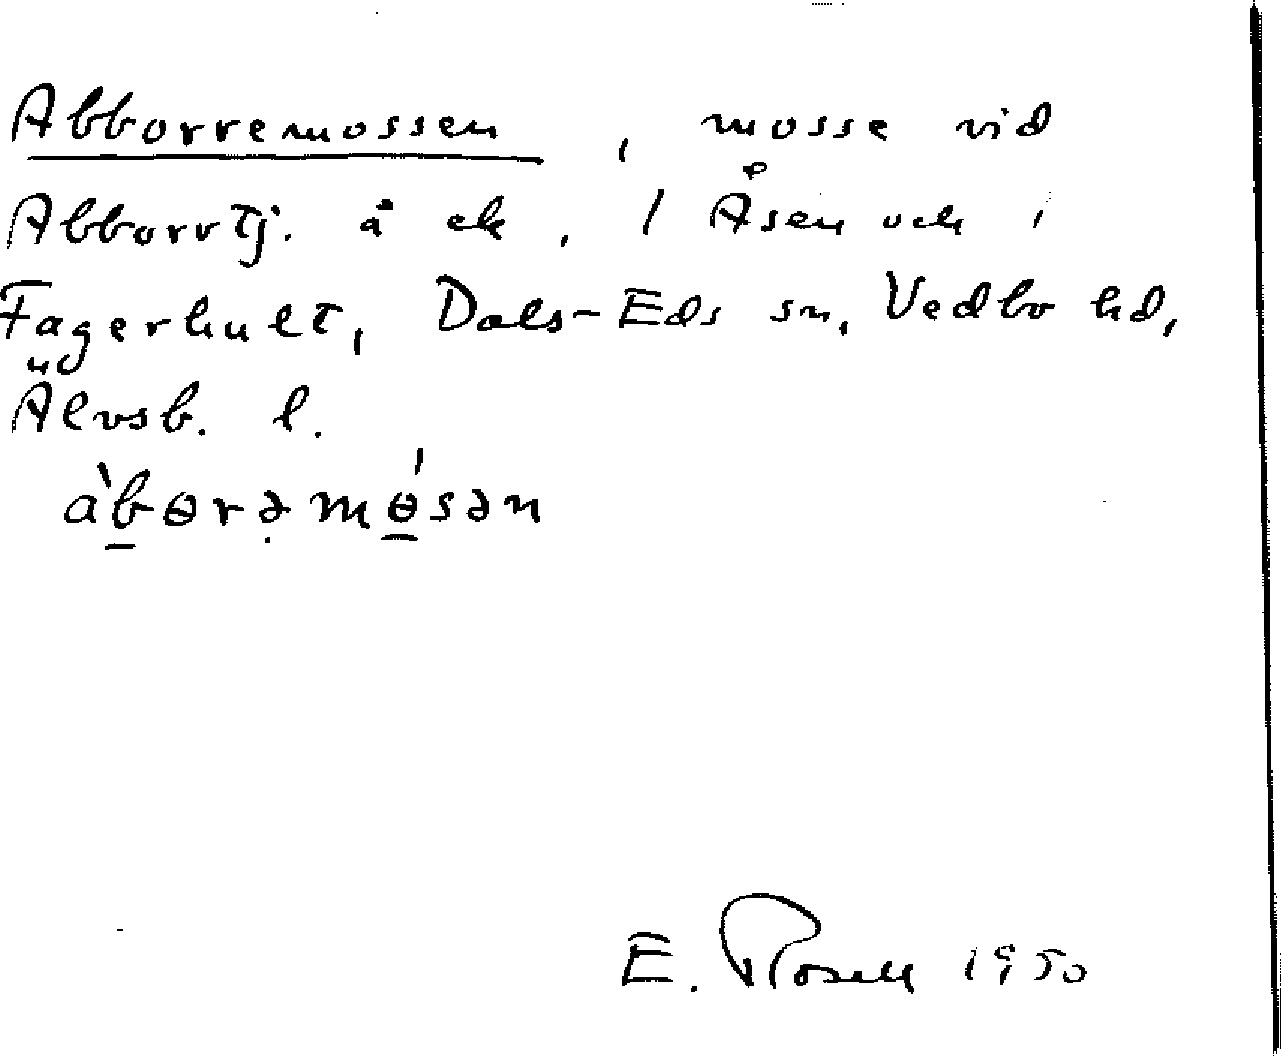 Abborremossen, mosse vid
Abborrtj. å ek, i Åsen och i
Fagerhult, Dals-Eds sn, Vedbo hd,
Älvsb. l.
à̀bɵrəmɵ́sən
E. Rosell 1950